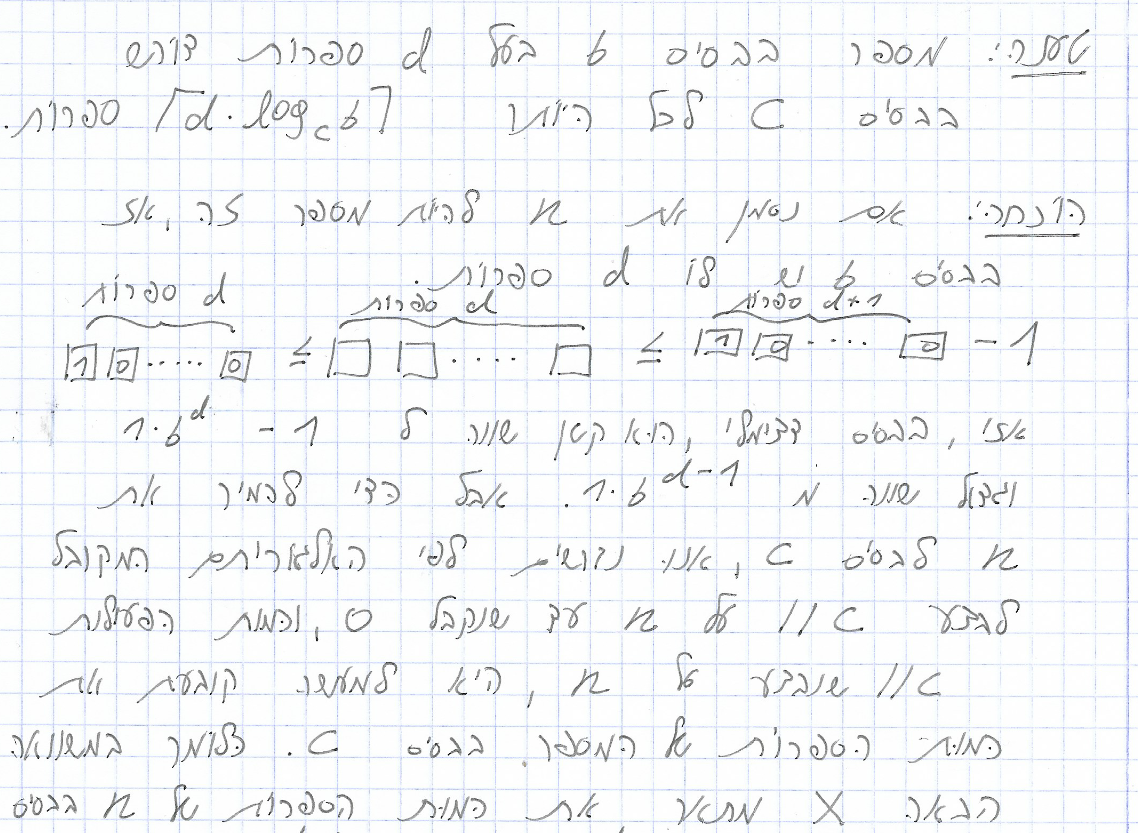 טענה: מספר בבסיס b בעל d ספרות דורש
בבסיס C לכל היותר ⌈d · log_c b⌉ ספרות.
הוכחה: אם נסמן את n להיות מספר זה, אז
בבסיס b יש לו d ספרות.
d ספרות d ספרות d+1 ספרות
1 0 ..... 0 ≤ □ □ ..... □ ≤ 1 0 ..... 0 - 1
אזי, בבסיס דצימלי, הוא קטן שווה ל 1·b^d - 1
וגדול שווה מ 1·b^(d-1). אבל כדי להמיר את
n לבסיס C, אנו נדרשים לפי האלגוריתם המקובל
לבצע // C על n עד שנקבל 0, וכמות הפעולות
// C שנבצע על n, היא למעשה קובעת את
כמות הספרות של המספר בבסיס C. כלומר במשוואה
הבאה X מתאר את כמות הספרות של n בבסיס